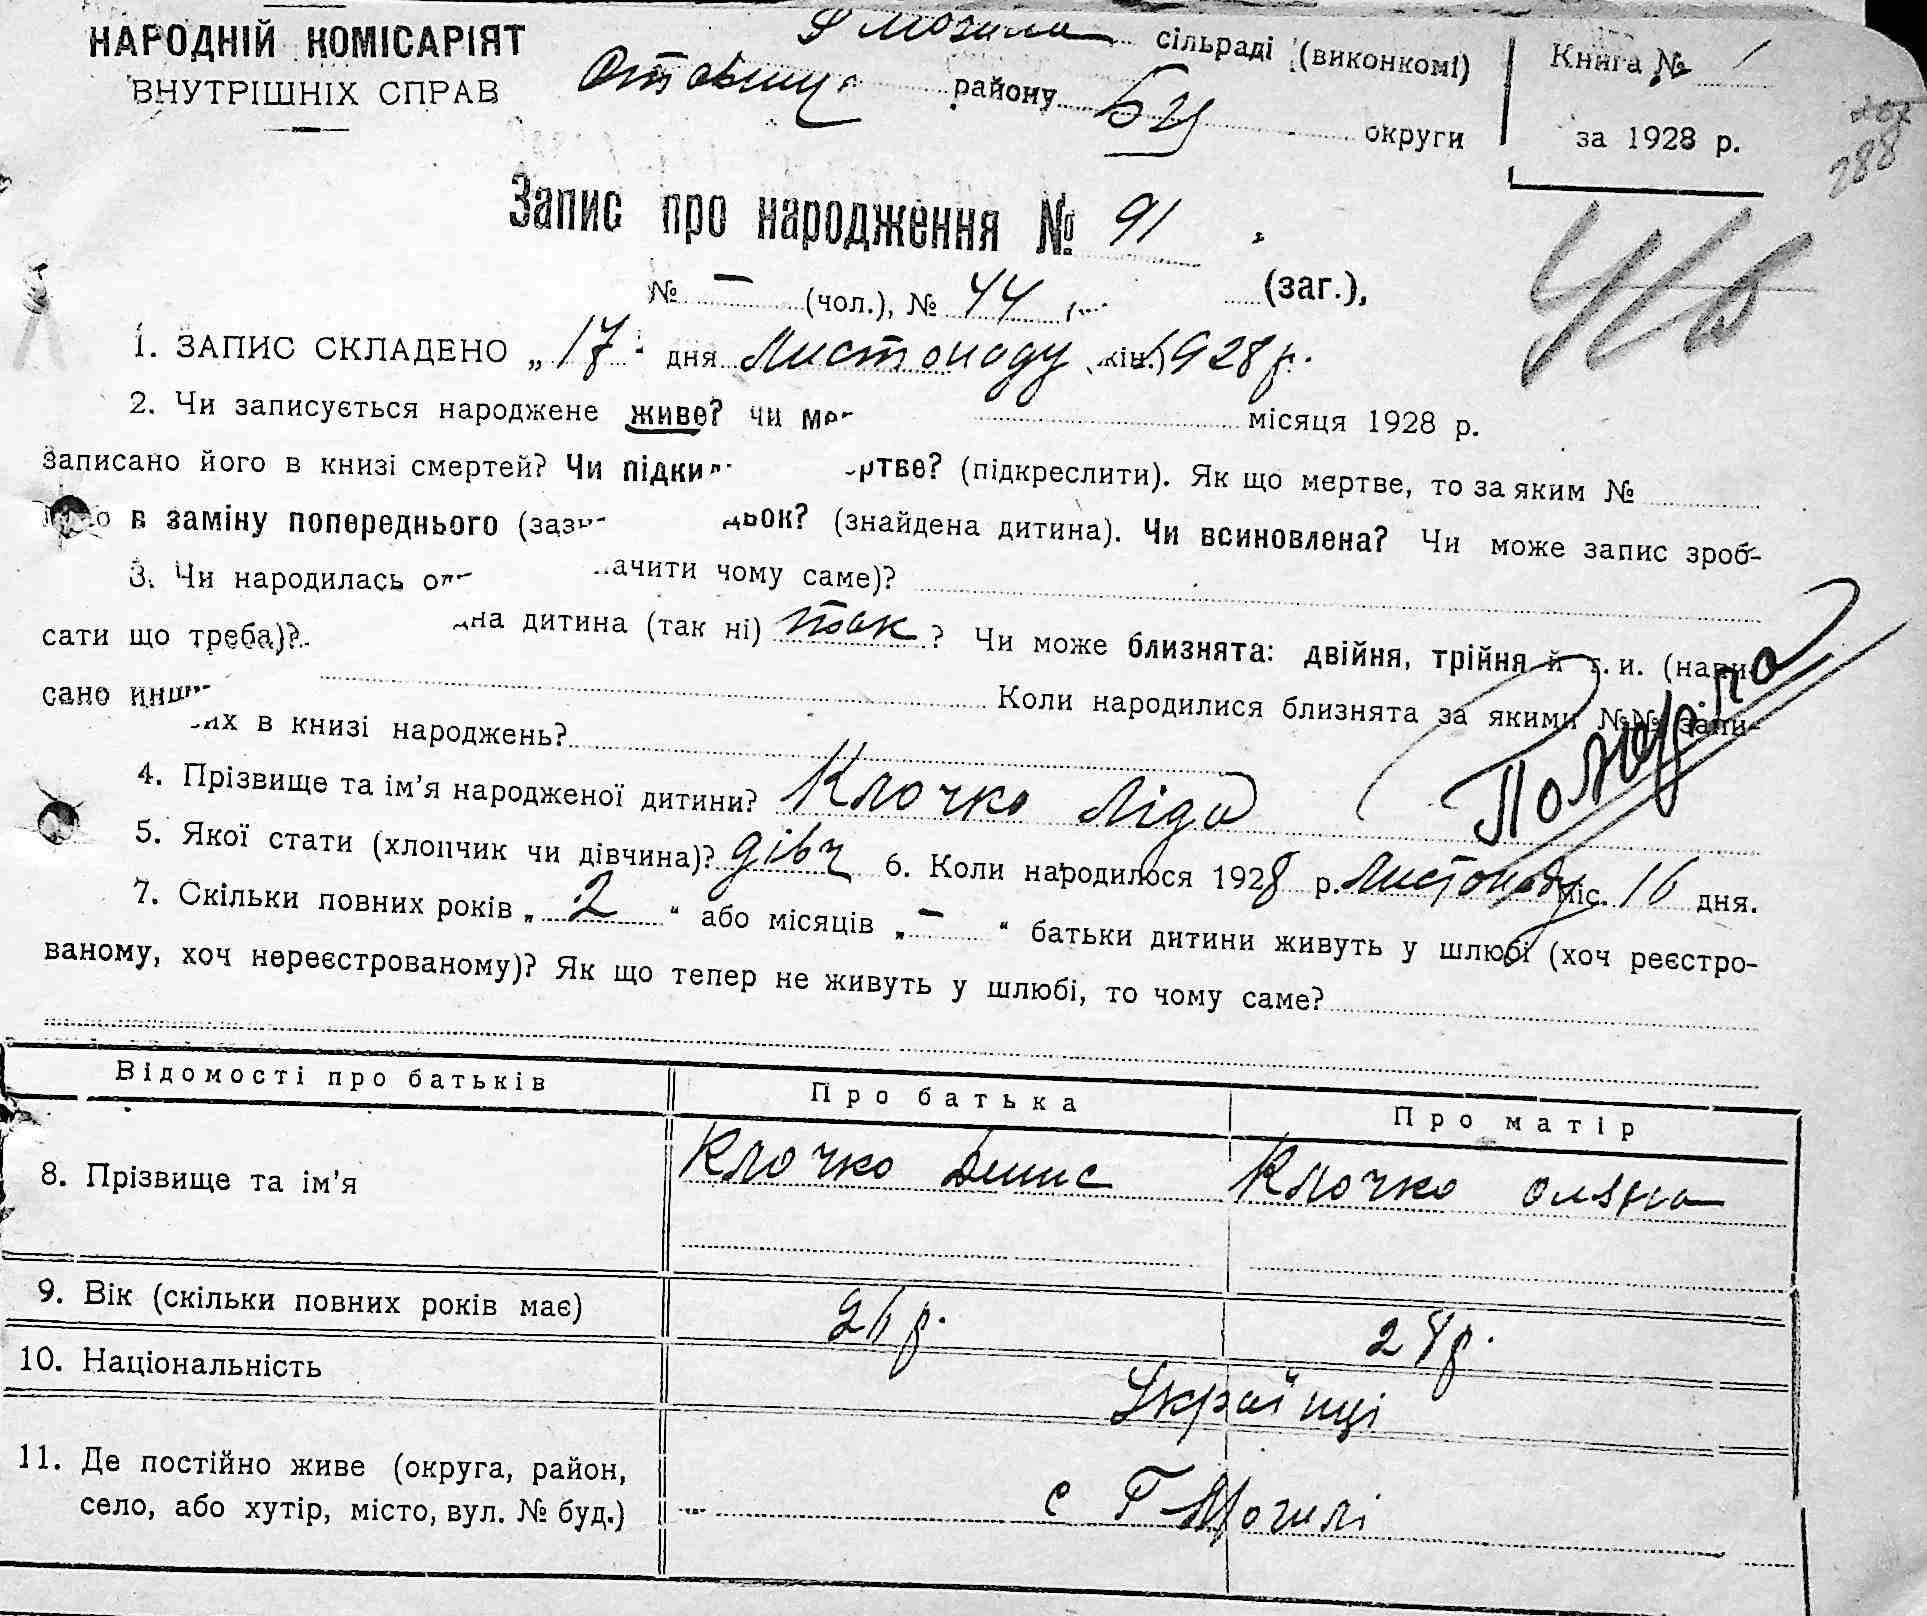 НАРОДНІЙ КОМІСАРІЯТ
ВНУТРІШНІХ СПРАВ
Могила сільраді (виконкомі)
району БЦ округи
Книга № 1
за 1928 р.
288
Запис про народження № 91
(заг.),
№ — (чол.), № 44
1. ЗАПИС СКЛАДЕНО „17" дня Листопаду 1928 р.
місяця 1928 р.
2. Чи записується народжене живе? чи мертве? (підкреслити). Як що мертве, то за яким №
записано його в книзі смертей? Чи підкидьок? (знайдена дитина). Чи всиновлена? Чи може запис зроб-
в заміну попереднього (зазначити чому саме)?
3. Чи народилась одна дитина (так ні) так? Чи може близнята: двійня, трійня й т. и. (напи-
сати що треба)? Коли народилися близнята за якими №№ запи-
сано инших в книзі народжень?
Померла
4. Прізвище та ім'я народженої дитини? Клочко Ліда
5. Якої стати (хлопчик чи дівчина)? дівч 6. Коли народилося 1928 р. Листопаду міс. 16 дня.
7. Скільки повних років „2" або місяців „—" батьки дитини живуть у шлюбі (хоч реєстро-
ваному, хоч нереєстрованому)? Як що тепер не живуть у шлюбі, то чому саме?
Відомості про батьків Про батька Про матір
8. Прізвище та ім'я Клочко Денис Клочко Оляна
9. Вік (скільки повних років має) 26 р. 24 р.
10. Національність Українці
11. Де постійно живе (округа, район,
село, або хутір, місто, вул. № буд.) с Г-Могилі